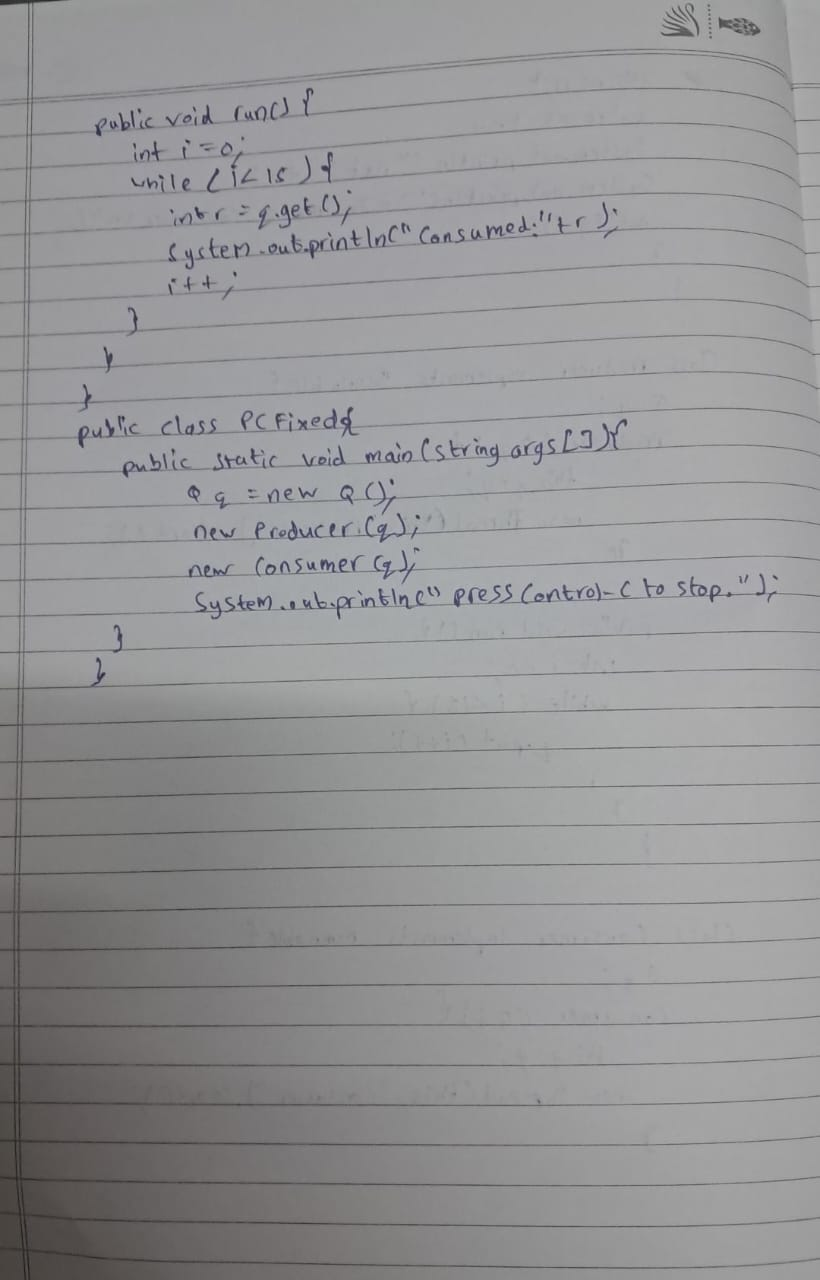 public void run() {
int i=0;
while (i<15) {
int r = q.get();
System.out.println("Consumed:"+r);
i++;
}
}
}
public class PCFixed{
public static void main(string args[]){
Q q = new Q();
new Producer(q);
new Consumer(q);
System.out.println("press Control-C to stop.");
}
}